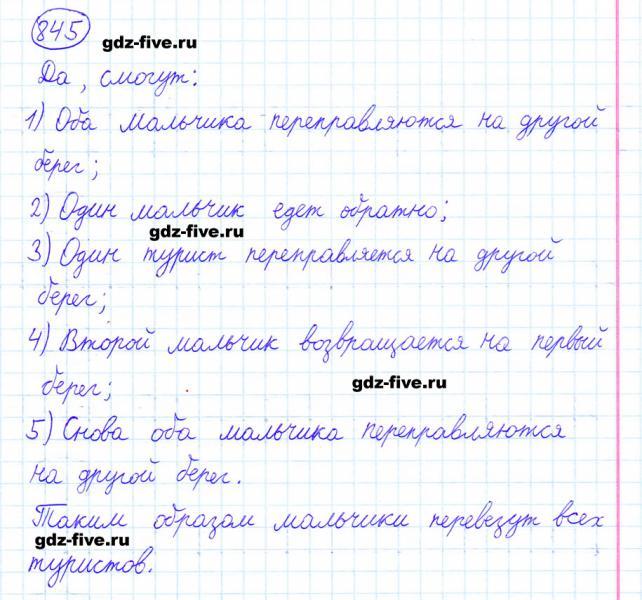 845
gdz-five.ru
Да, смогут:
1) Оба мальчика переправляются на другой
берег;
2) Один мальчик едет обратно;
gdz-five.ru
3) Один турист переправляется на другой
берег;
4) Второй мальчик возвращается на первый
берег;
gdz-five.ru
5) Снова оба мальчика переправляются
на другой берег.
Таким образом мальчики перевезут всех
gdz-five.ru
туристов.